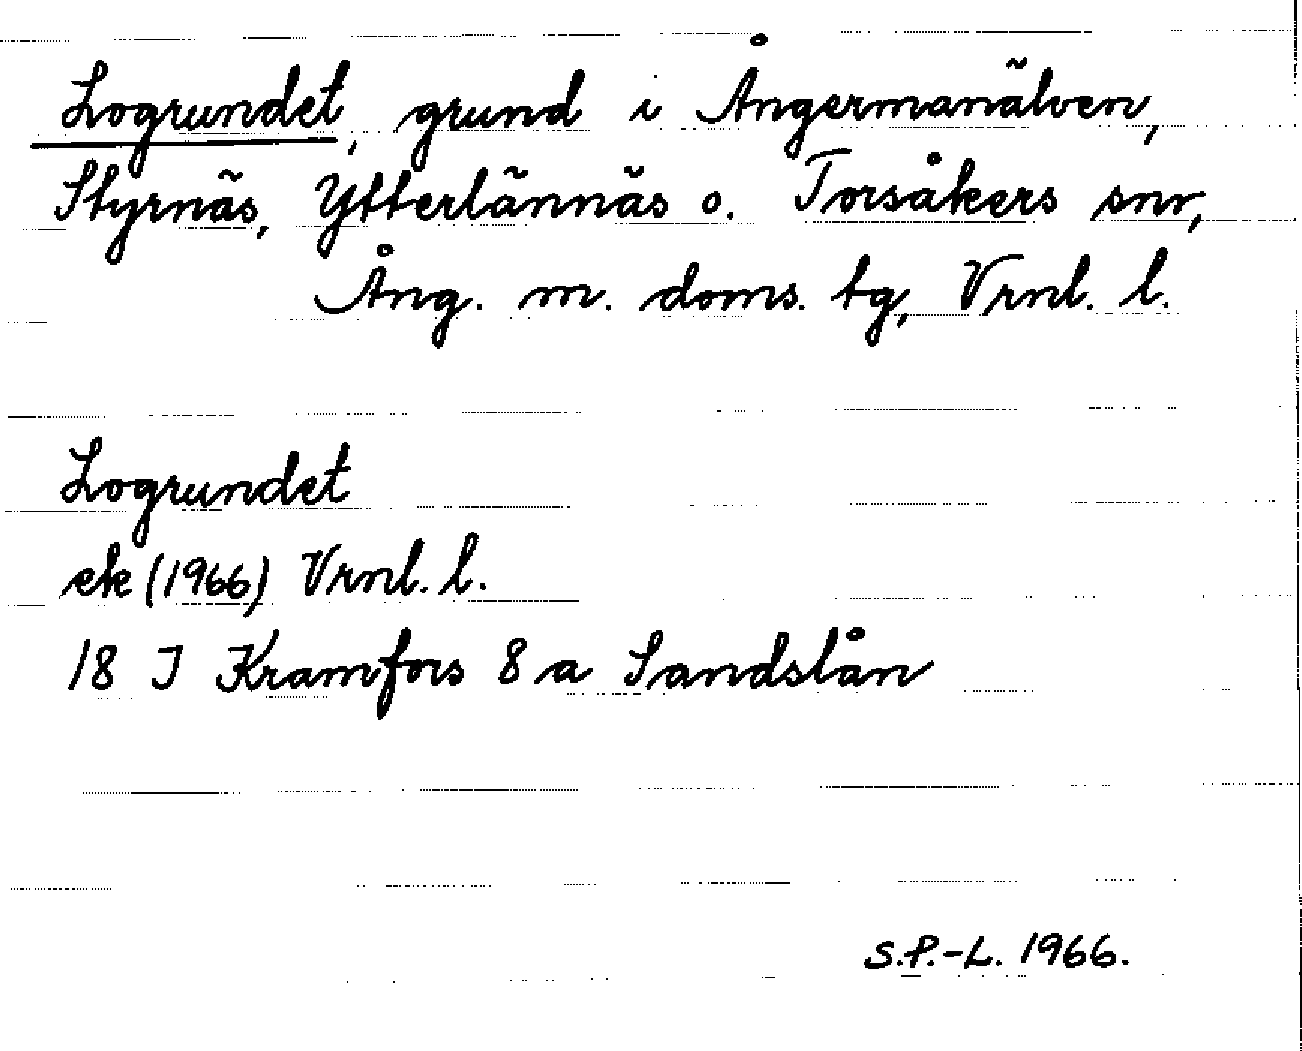 Logrundet, grund i Ångermanälven,
Styrnäs, Ytterlännäs o. Torsåkers snr,
Ång. m. doms. tg, Vrnl. l.
Logrundet
ek (1966) Vrnl. l.
18 I Kramfors 8 a Sandslån
S.P.-L. 1966.